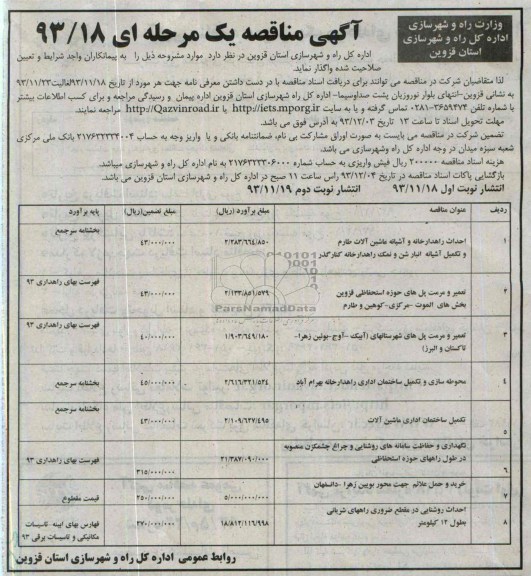 وزارت راه و شهرسازی
اداره کل راه و شهرسازی
استان قزوین
آگهی مناقصه یک مرحله ای ۹۳/۱۸
اداره کل راه و شهرسازی استان قزوین در نظر دارد موارد مشروحه ذیل را به پیمانکاران واجد شرایط و تعیین
صلاحیت شده واگذار نماید.
لذا متقاضیان شرکت در مناقصه می توانند برای دریافت اسناد مناقصه با در دست داشتن معرفی نامه جهت هر مورد از تاریخ ۹۳/۱۱/۱۸لغایت۹۳/۱۱/۲۳
به نشانی قزوین-انتهای بلوار نوروزیان پشت صداوسیما- اداره کل راه و شهرسازی استان قزوین اداره پیمان و رسیدگی مراجعه و برای کسب اطلاعات بیشتر
با شماره تلفن ۳۶۵۹۴۷۴-۰۲۸۱ تماس گرفته و یا به سایت http://iets.mporg.ir یا http://Qazvinroad.ir مراجعه نمایند.
مهلت تحویل اسناد تا ساعت ۱۳ تاریخ ۹۳/۱۲/۰۳ به آدرس فوق می باشد.
تضمین شرکت در مناقصه می بایست به صورت اوراق مشارکت بی نام، ضمانتنامه بانکی و یا واریز وجه به حساب ۲۱۷۶۳۳۳۳۰۰۴ بانک ملی مرکزی
شعبه سبزه میدان در وجه اداره کل راه وشهرسازی می باشد.
هزینه اسناد مناقصه ۲۰۰۰۰۰ ریال فیش واریزی به حساب شماره ۲۱۷۶۳۳۳۳۰۶۰۰۰ به نام اداره کل راه و شهرسازی میباشد.
بازگشایی پاکات اسناد مناقصه در تاریخ ۹۳/۱۲/۰۴ راس ساعت ۱۱ صبح در اداره کل راه و شهرسازی استان قزوین می باشد.
انتشار نوبت اول ۹۳/۱۱/۱۸ انتشار نوبت دوم ۹۳/۱۱/۱۹
ردیف عنوان مناقصه مبلغ برآورد (ریال) مبلغ تضمین(ریال) پایه برآورد
۱ احداث راهدارخانه و آشیانه ماشین آلات طارم
و تکمیل آشیانه انبار شن و نمک راهدارخانه کنارگذر ۲/۲۸۳/۶۶۴/۸۵۰ ۴۳/۰۰۰/۰۰۰ بخشنامه سرجمع
۲ تعمیر و مرمت پل های حوزه استحفاظی قزوین
بخش های الموت -مرکزی-کوهین و طارم ۲/۱۳۳/۸۵۱/۵۷۹ ۴۳/۰۰۰/۰۰۰ فهرست بهای راهداری ۹۳
۳ تعمیر و مرمت پل های شهرستانهای (آبیک -آوج-بوئین زهرا-
تاکستان و البرز) ۱/۹۰۳/۶۴۹/۱۸۰ ۴۰/۰۰۰/۰۰۰ فهرست بهای راهداری ۹۳
۴ محوطه سازی و تکمیل ساختمان اداری راهدارخانه بهرام آباد ۲/۶۱۶/۳۲۱/۵۲۴ ۴۵/۰۰۰/۰۰۰ بخشنامه سرجمع
۵ تکمیل ساختمان اداری ماشین آلات ۲/۱۰۹/۶۳۷/۴۹۵ ۴۳/۰۰۰/۰۰۰ بخشنامه سرجمع
۶ نگهداری و حفاظت سامانه های روشنایی و چراغ چشمکزن منصوبه
در طول راههای حوزه استحفاظی ۲۱/۳۸۷/۰۹۰/۰۰۰ ۳۱۵/۰۰۰/۰۰۰ فهرست بهای راهداری ۹۳
۷ خرید و حمل علائم جهت محور بویین زهرا -دانسفهان ۵/۰۰۰/۰۰۰/۰۰۰ ۲۵۰/۰۰۰/۰۰۰ قیمت مقطوع
۸ احداث روشنایی در مقطع ضروری راههای شریانی
بطول ۱۲ کیلومتر ۱۸/۸۱۲/۱۱۶/۹۹۸ ۲۷۰/۰۰۰/۰۰۰ فهارس بهای ابنیه- تاسیسات
مکانیکی و تاسیسات برقی ۹۳
ParsNamadData
روابط عمومی اداره کل راه و شهرسازی استان قزوین